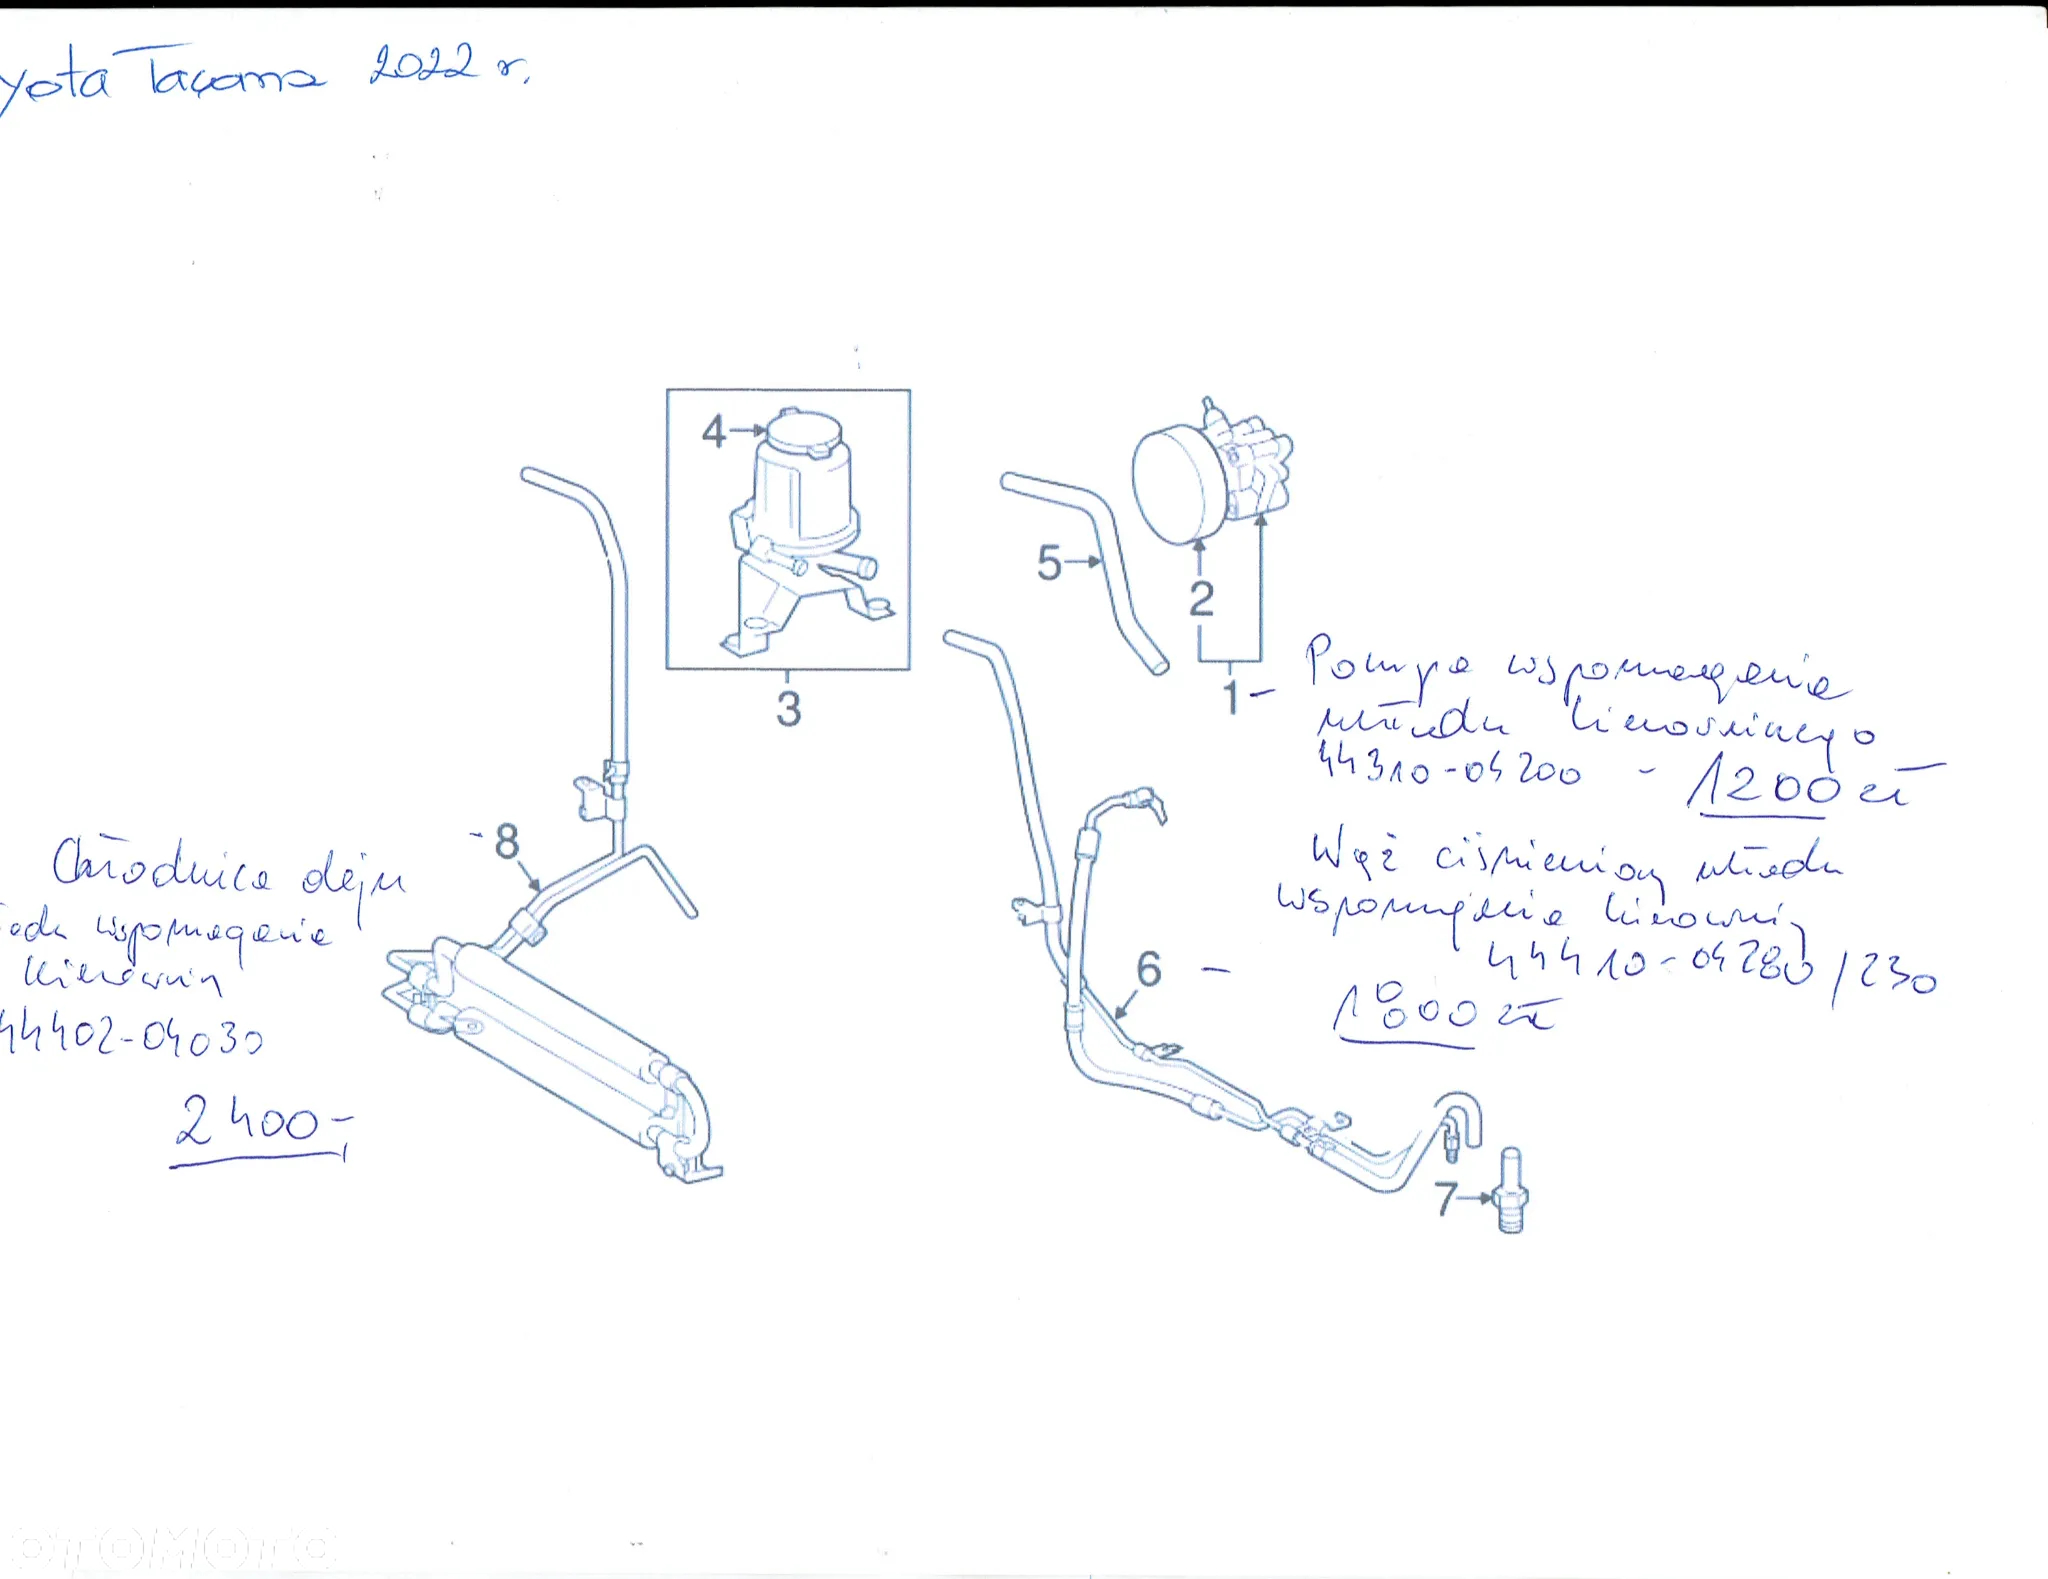 yota Tacoma 2022 r.
4
5
2
3
1 - Pompa wspomagania
układu kierowniczego
44310-04200 - 1200 zł
- 8
Chłodnica oleju
adu wspomagania
kierowni
44402-04030
2400-
Wąż ciśnieniowy układu
wspomagania kierowni
44410-04280/230
6 - 1800 zł
7
OTOMOTO